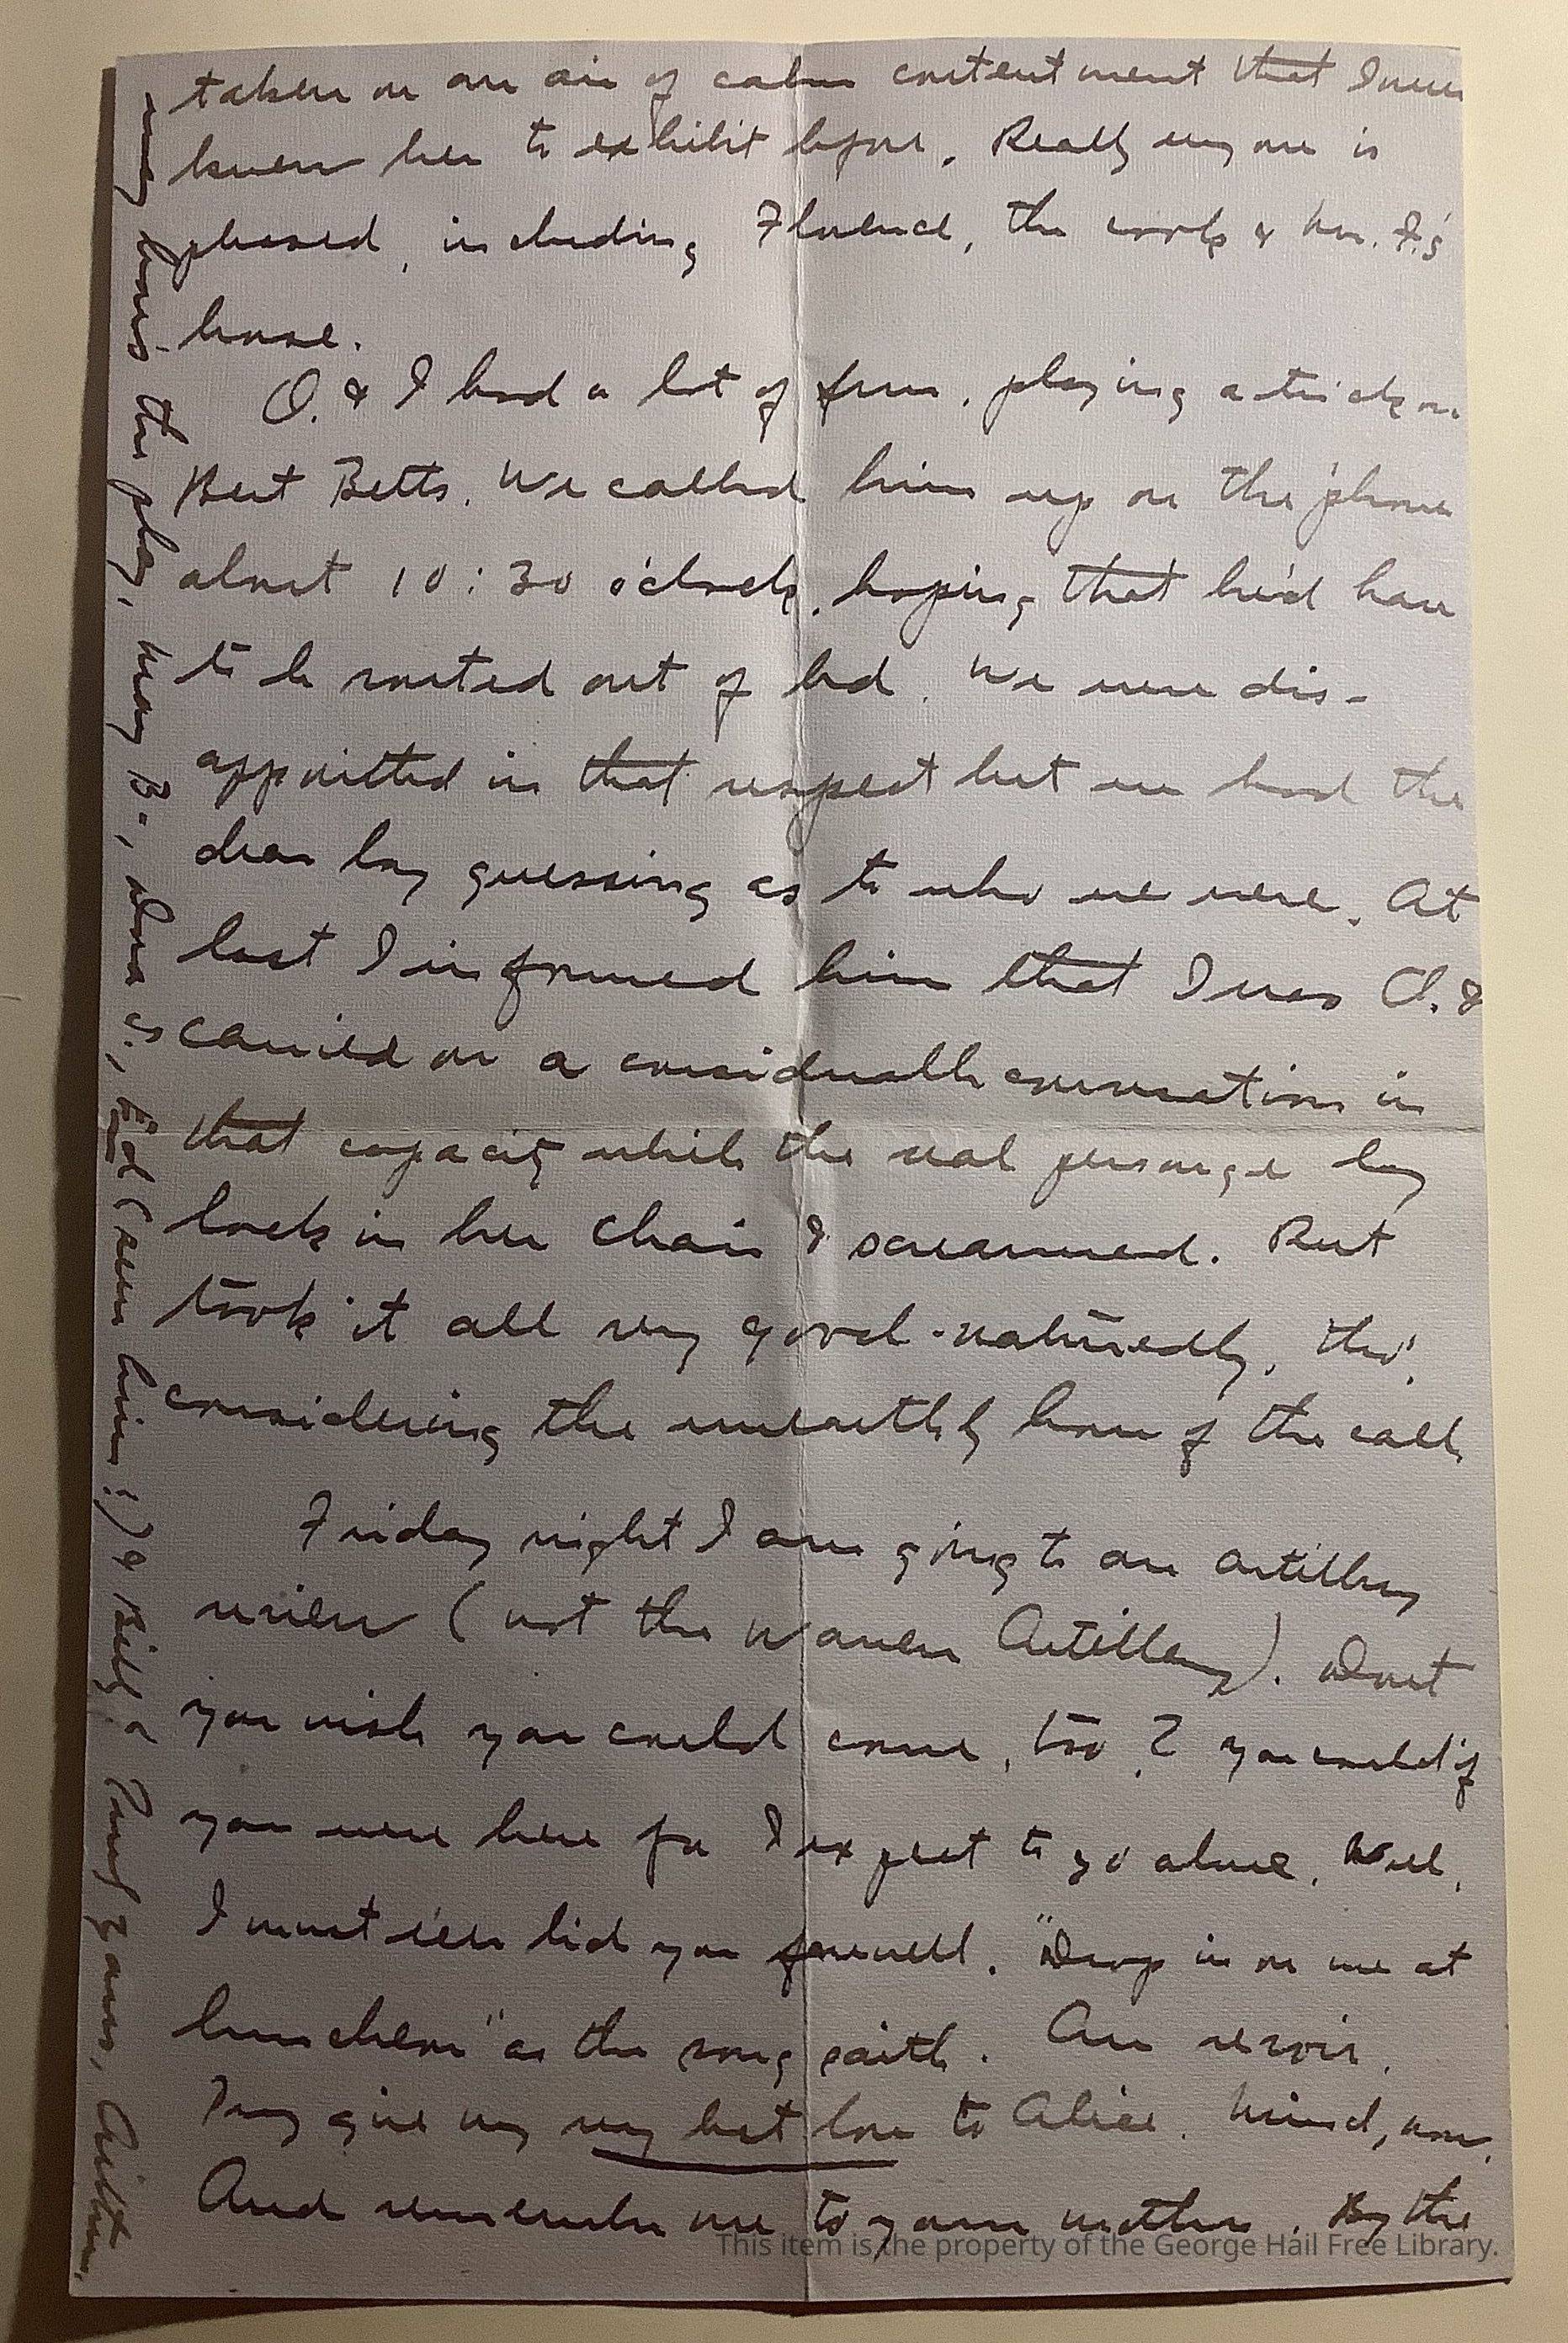 taken on an air of calm contentment that I never
knew her to exhibit before. Really every one is
pleased, including Florence, the cook & Mrs. F.'s
horse.
O. & I had a lot of fun, playing a trick on
Bert Betts. We called him up on the 'phone
about 10:30 o'clock, hoping that he'd have
to be routed out of bed. We were dis-
appointed in that respect but we had the
dear boy guessing as to who we were. At
last I informed him that I was O. &
carried on a considerable conversation in
that capacity while the real personage lay
back in her chair & screamed. Bert
took it all very good-naturedly, tho',
considering the unearthly hour of the call.
Friday night I am going to an artillery
review (not the Warren Artillery). Don't
you wish you could come, too? You could if
you were here for I expect to go alone. Well,
I must e'en bid you farewell. "Drop in on me at
luncheon" as the song saith. Au revoir.
Pray give my very best love to Alice. Mind, now.
And remember me to your mother. By the
way how's the play, May B-, Dora C., Ed (seen him!) & Billy?
Fondly yours, Arthur.
This item is the property of the George Hail Free Library.